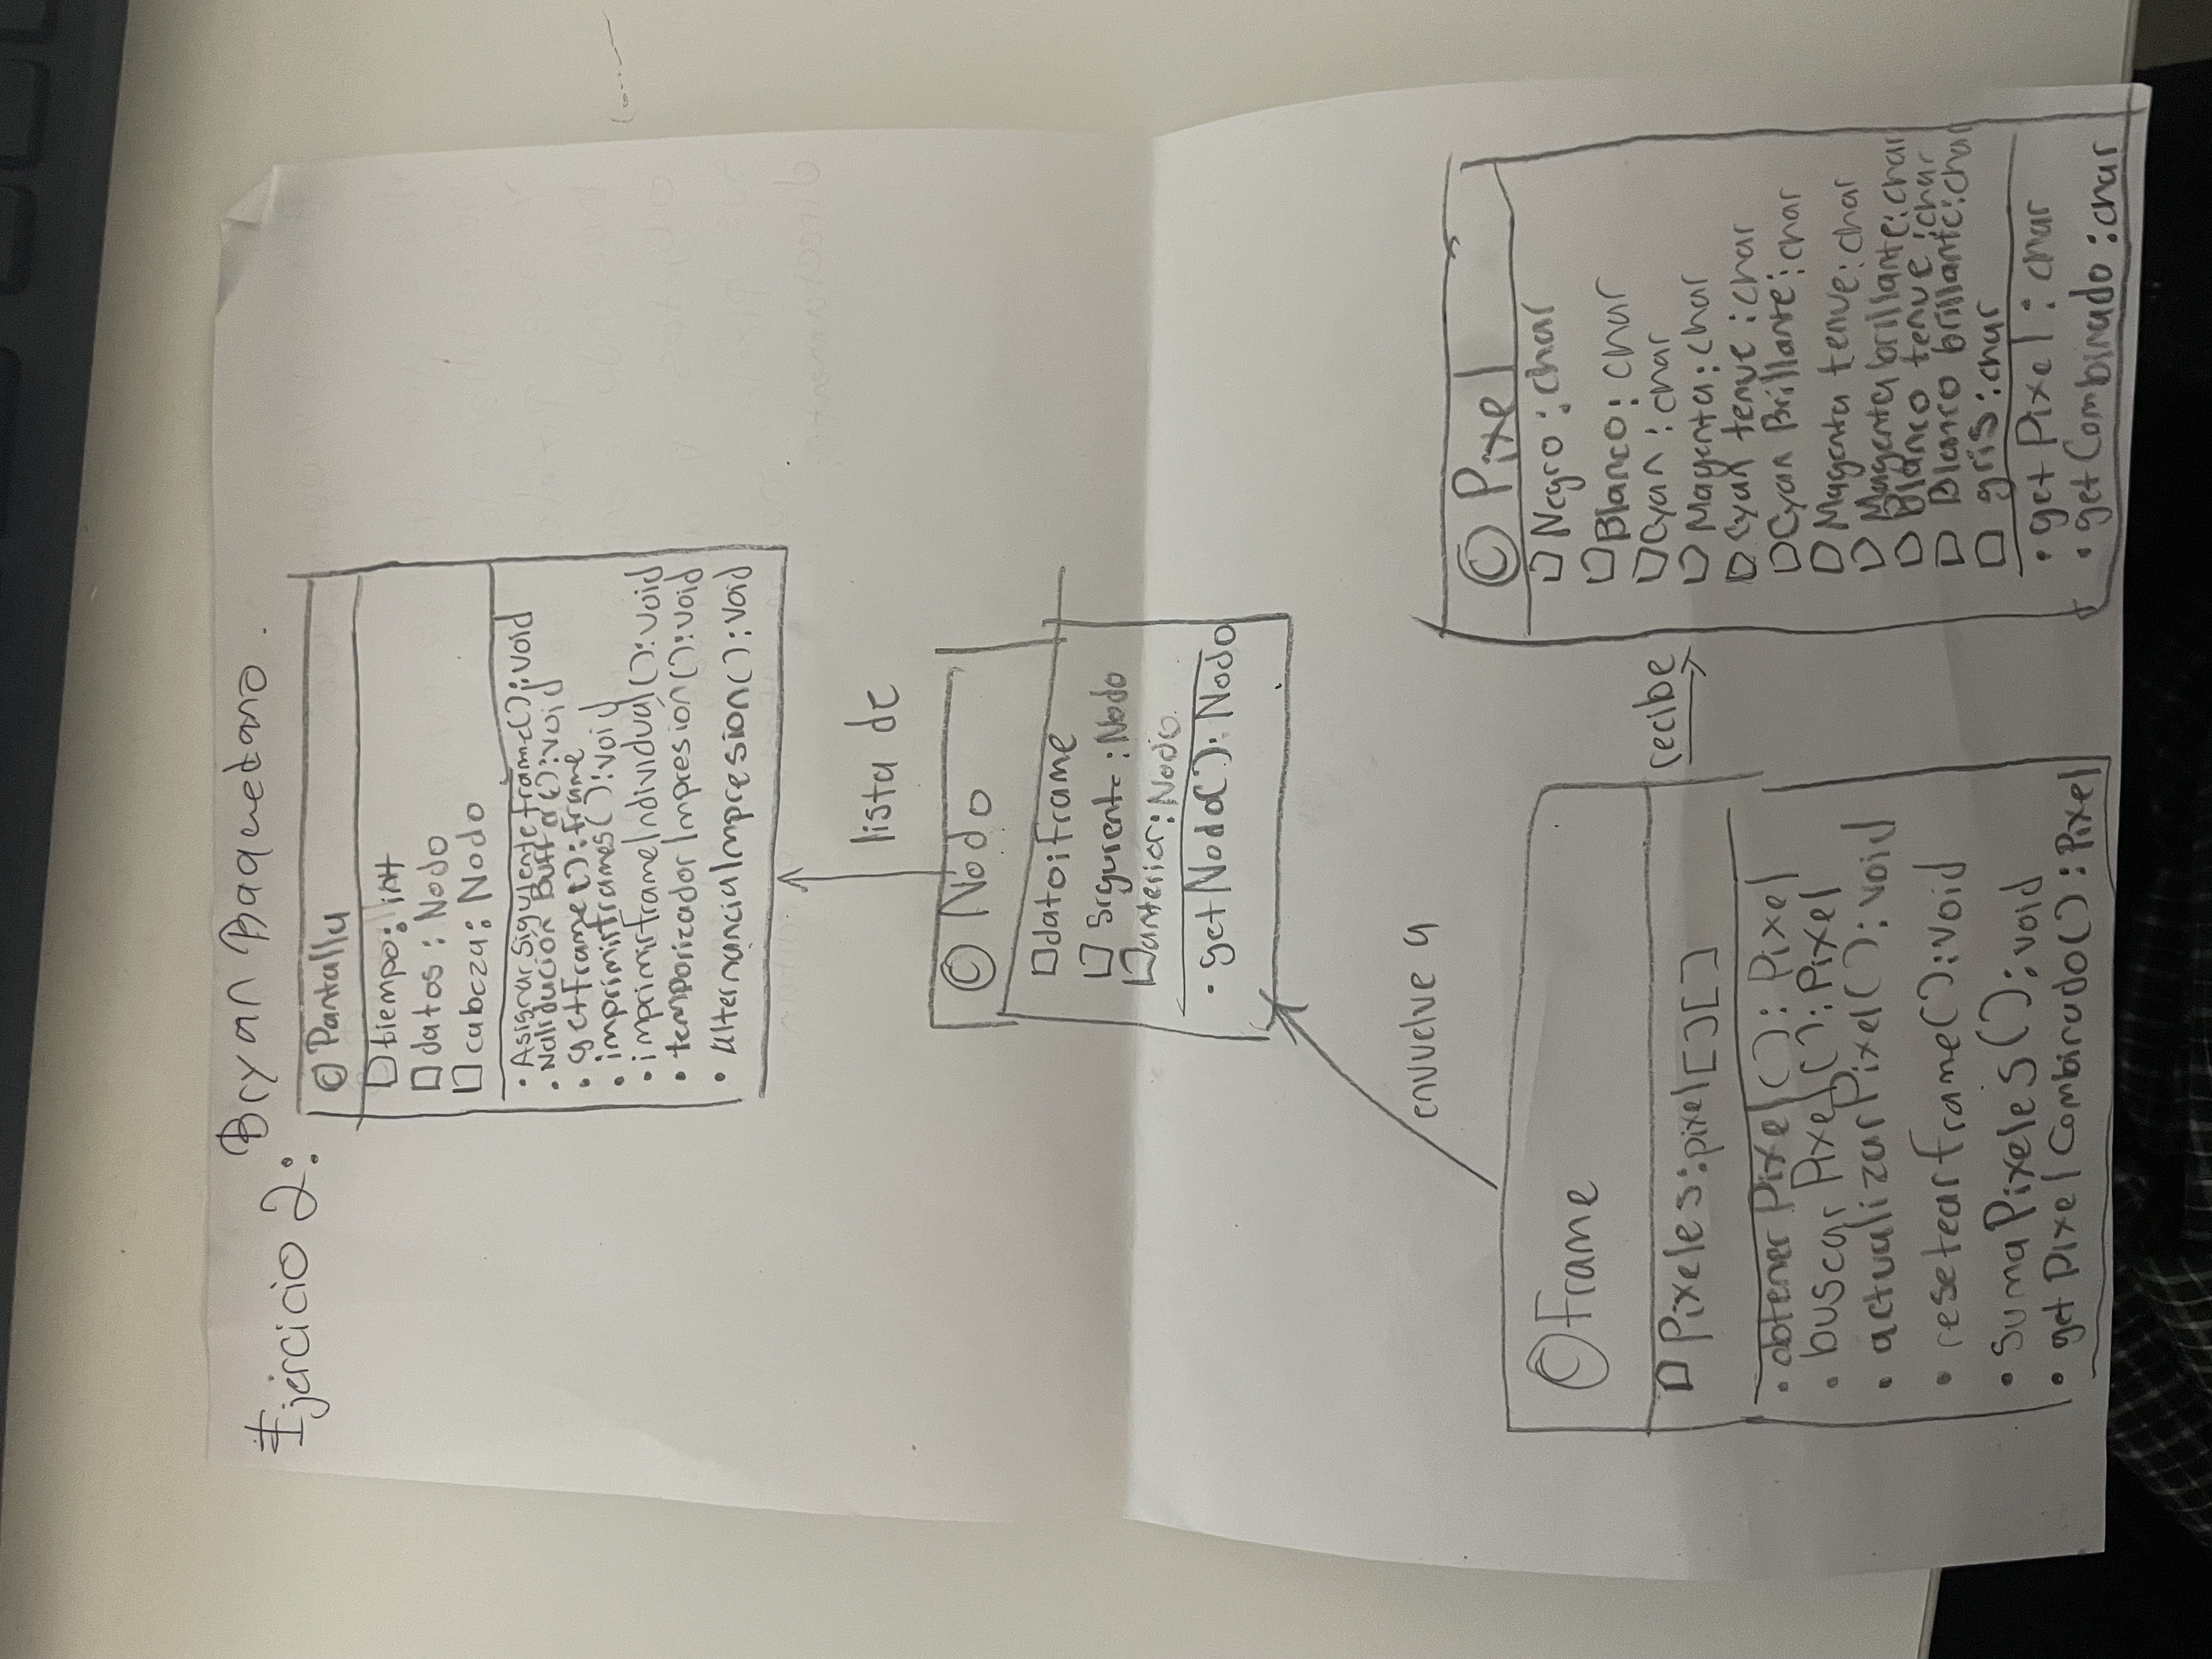 Bryan Baquedano.
Ejercicio 2:
© Pantalla
tiempo: int
datos: Nodo
cabeza: Nodo
• AsignarSiguienteframe(): void
• Validación Buffer(): void
• getFrame(): frame
• imprimirframes(): void
• imprimirframeIndividual(): void
• temporizadorImpresión(): void
• alternanciaImpresion(): void
lista de
© Nodo
dato: frame
Siguiente: Nodo
anterior: Nodo
• getNodo(): Nodo
envuelve a
© frame
Pixeles: pixel[][]
• obtenerPixel(): Pixel
• buscarPixel(): Pixel
• actualizarPixel(): void
• resetearframe(): void
• sumaPixeles(): void
• getPixelCombinado(): Pixel
recibe
© Pixel
Negro: char
Blanco: char
Cyan: char
Magenta: char
Cyan tenue: char
Cyan Brillante: char
Magenta tenue: char
Magenta brillante: char
Blanco tenue: char
Blanco brillante: char
gris: char
• getPixel: char
• getCombinado: char